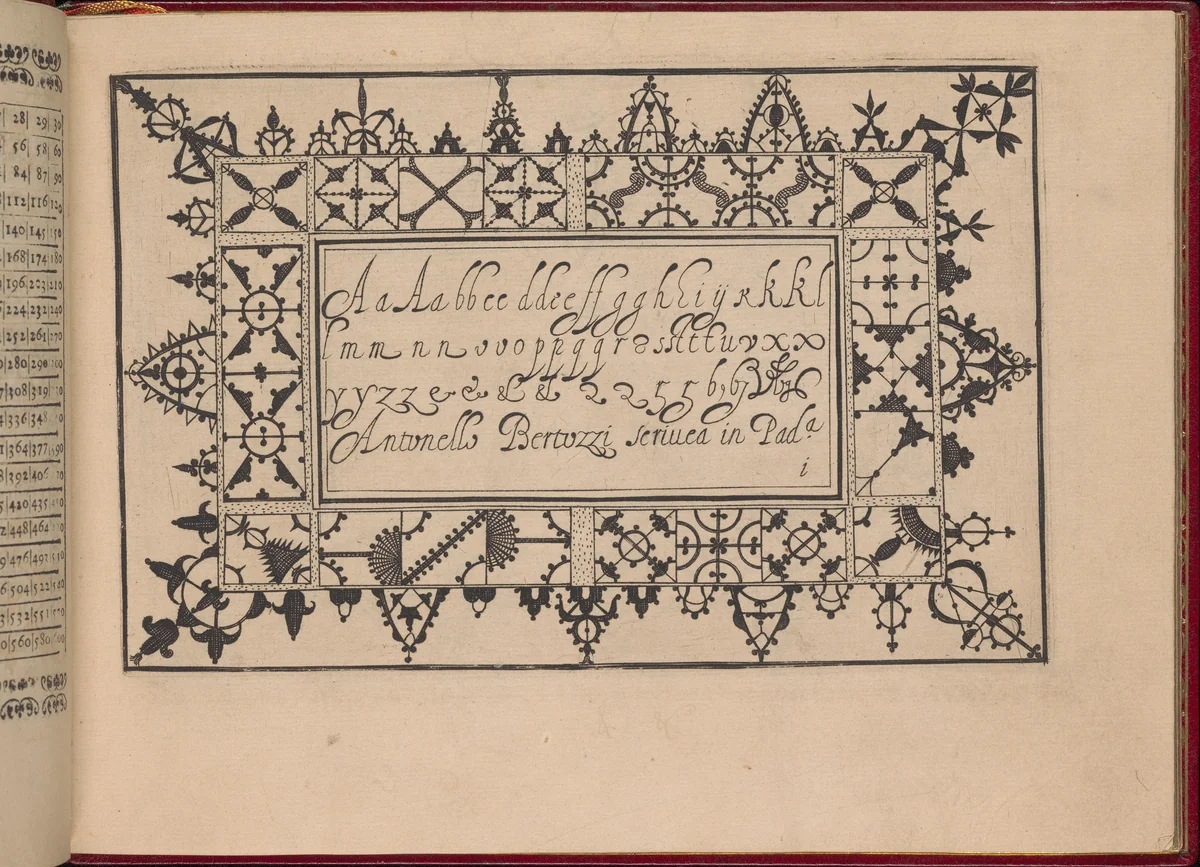 28 29 30
56 58 60
84 87 90
112 116 120
140 145 150
168 174 180
196 203 210
224 232 240
252 261 270
280 290
308 319
336 348
364 377
392 406
420 435
448 464
476 493 510
504 522 540
532 551 570
560 580
A a A a b b c c d d e e f f g g h h i ij x k k k l
l m m n n v v o p p q q r s s st t t u v x x
y y z z & & & & 2 2 5 5
Antonello Bertozzi scriuea in Pad.a
i